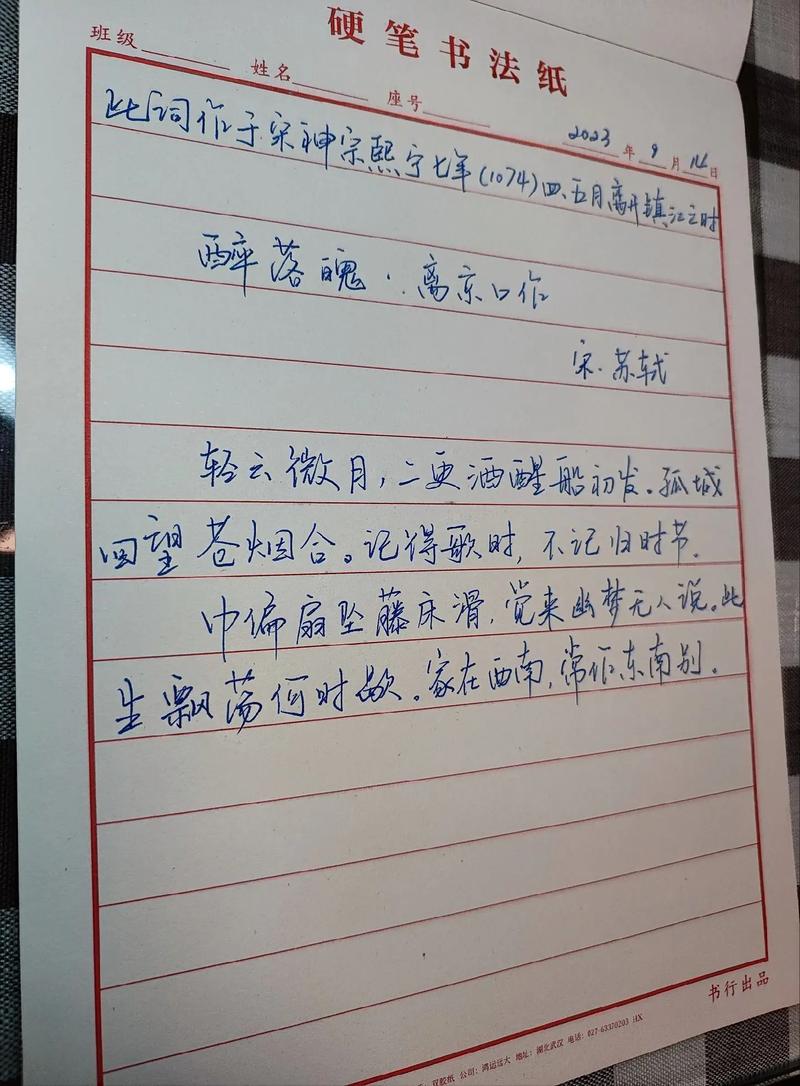 硬笔书法纸
班级 姓名 座号 2023年9月14日
此词作于宋神宗熙宁七年(1074)四、五月离开镇江之时
醉落魄·离京口作
宋·苏轼
轻云微月,二更酒醒船初发。孤城
回望苍烟合。记得歌时,不记归时节。
巾偏扇坠藤床滑,觉来幽梦无人说。此
生飘荡何时歇。家在西南,常作东南别。
书行出品
双胶纸 公司:鸿运远大 地址:湖北武汉 电话:027-63370203 HX